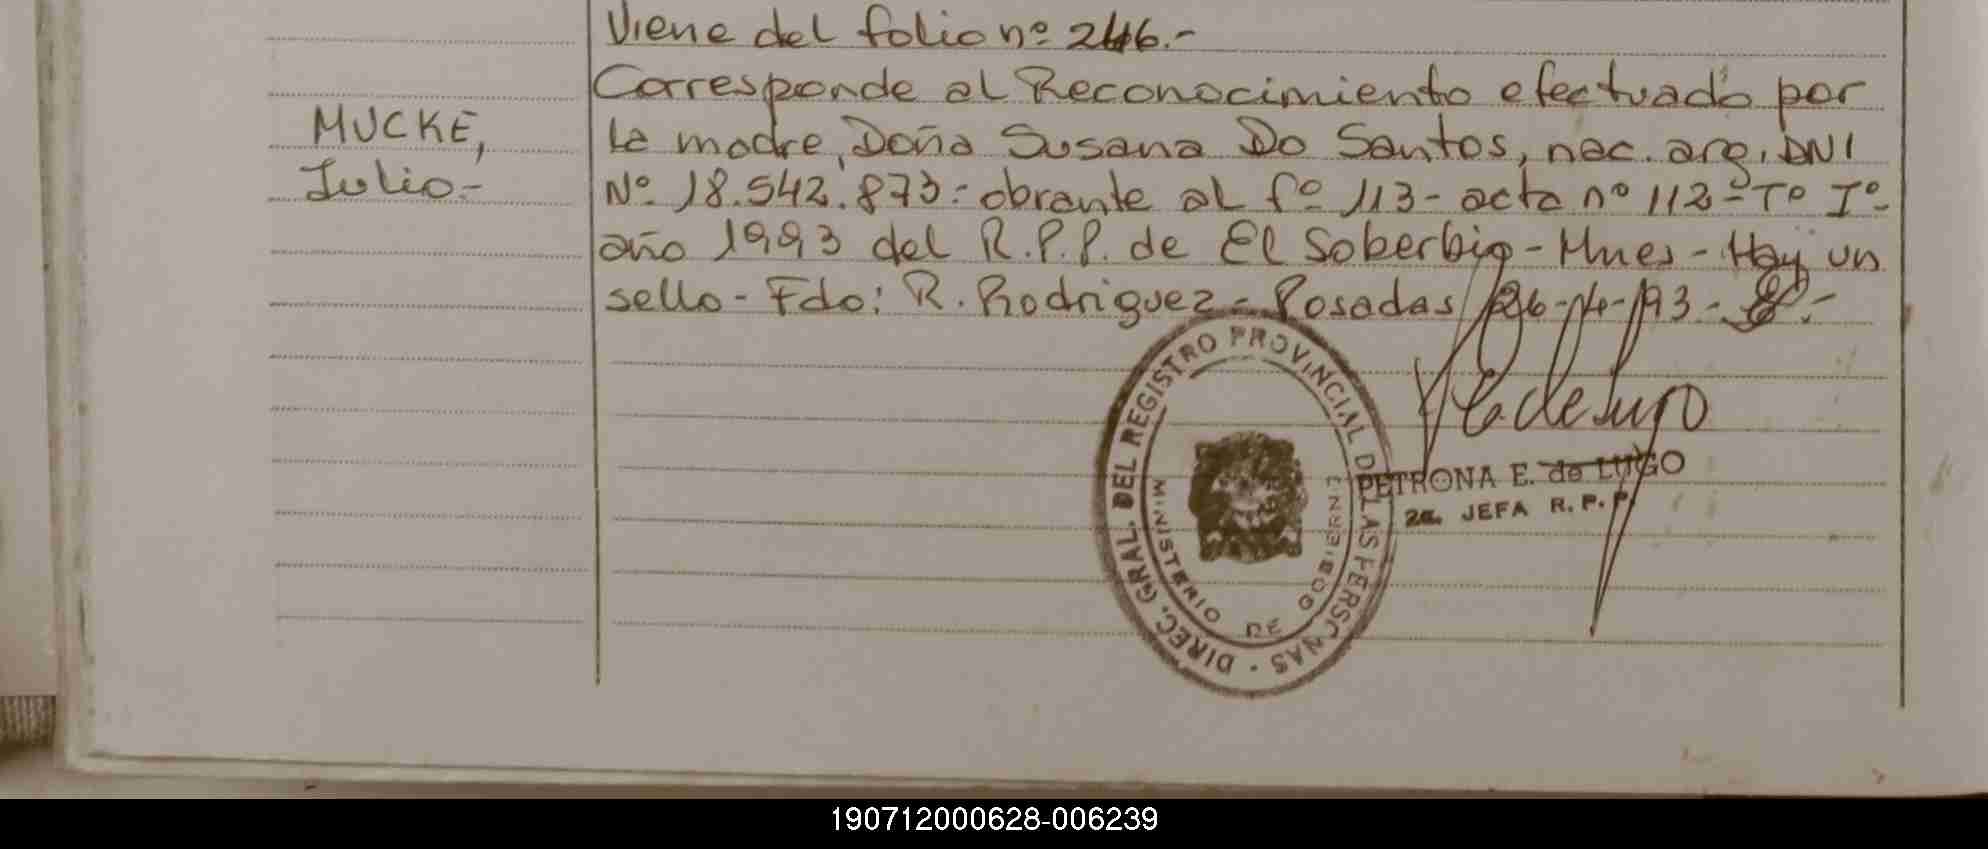 Viene del folio nº 246.-
Corresponde al Reconocimiento efectuado por
MUCKE,
Julio.-
la madre, Doña Susana Do Santos, nac. arg. DNI
Nº 18.542.873.- obrante al fº 113- acta nº 112- Tº Iº-
año 1993 del R.P.P. de El Soberbio - Mnes - Hay un
sello - Fdo: R. Rodriguez - Posadas 26-4-93-
E. de Lugo
PETRONA E. de LUGO
2a. JEFA R. P. P.
DIREC. GRAL. DEL REGISTRO PROVINCIAL DE LAS PERSONAS
MINISTERIO DE GOBIERNO
190712000628-006239